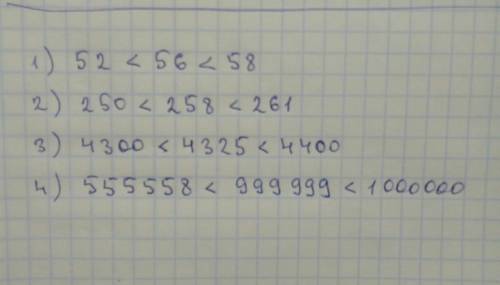 1) 52 < 56 < 58
2) 250 < 258 < 261
3) 4300 < 4325 < 4400
4) 555558 < 999999 < 1000000